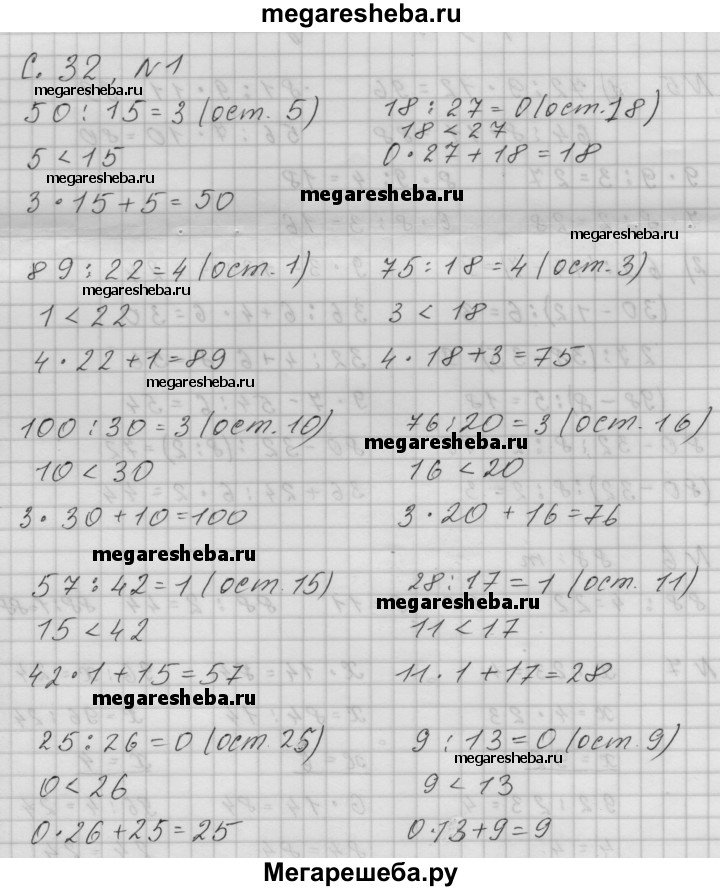 megaresheba.ru
С. 32, №1
megaresheba.ru
50 : 15 = 3 (ост. 5)
18 : 27 = 0 (ост. 18)
18 < 27
5 < 15
0 · 27 + 18 = 18
megaresheba.ru
3 · 15 + 5 = 50
megaresheba.ru
megaresheba.ru
89 : 22 = 4 (ост. 1)
75 : 18 = 4 (ост. 3)
megaresheba.ru
1 < 22
3 < 18
4 · 22 + 1 = 89
4 · 18 + 3 = 75
megaresheba.ru
100 : 30 = 3 (ост. 10)
76 : 20 = 3 (ост. 16)
megaresheba.ru
10 < 30
16 < 20
3 · 30 + 10 = 100
3 · 20 + 16 = 76
megaresheba.ru
57 : 42 = 1 (ост. 15)
28 : 17 = 1 (ост. 11)
megaresheba.ru
15 < 42
11 < 17
42 · 1 + 15 = 57
11 · 1 + 17 = 28
megaresheba.ru
25 : 26 = 0 (ост. 25)
9 : 13 = 0 (ост. 9)
megaresheba.ru
0 < 26
9 < 13
0 · 26 + 25 = 25
0 · 13 + 9 = 9
Мегарешеба.ру